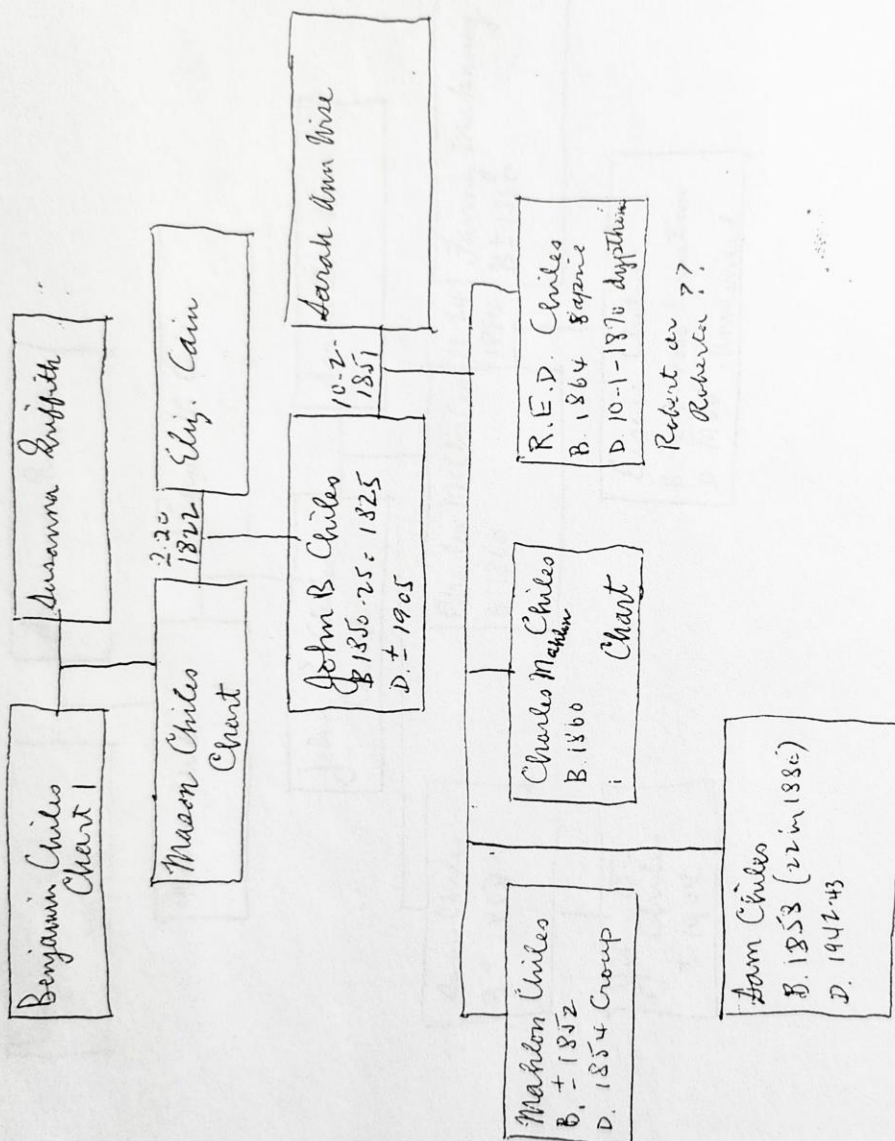 Benjamin Chiles
Chart 1
Susanna Griffith
Mason Chiles
Chart
2-20
1822
Eliz. Cain
John B Chiles
B 1850-25= 1825
D. ± 1905
10-2-
1851
Sarah Ann Wise
Mahlon Chiles
B. ± 1852
D. 1854 Croup
Sam Chiles
B. 1858 (22 in 1880)
D. 1942-43
Charles Mahlon Chiles
B. 1860
Chart
R.E.D. Chiles
B. 1864
D. 10-1-1870
Robert or
Roberta ??